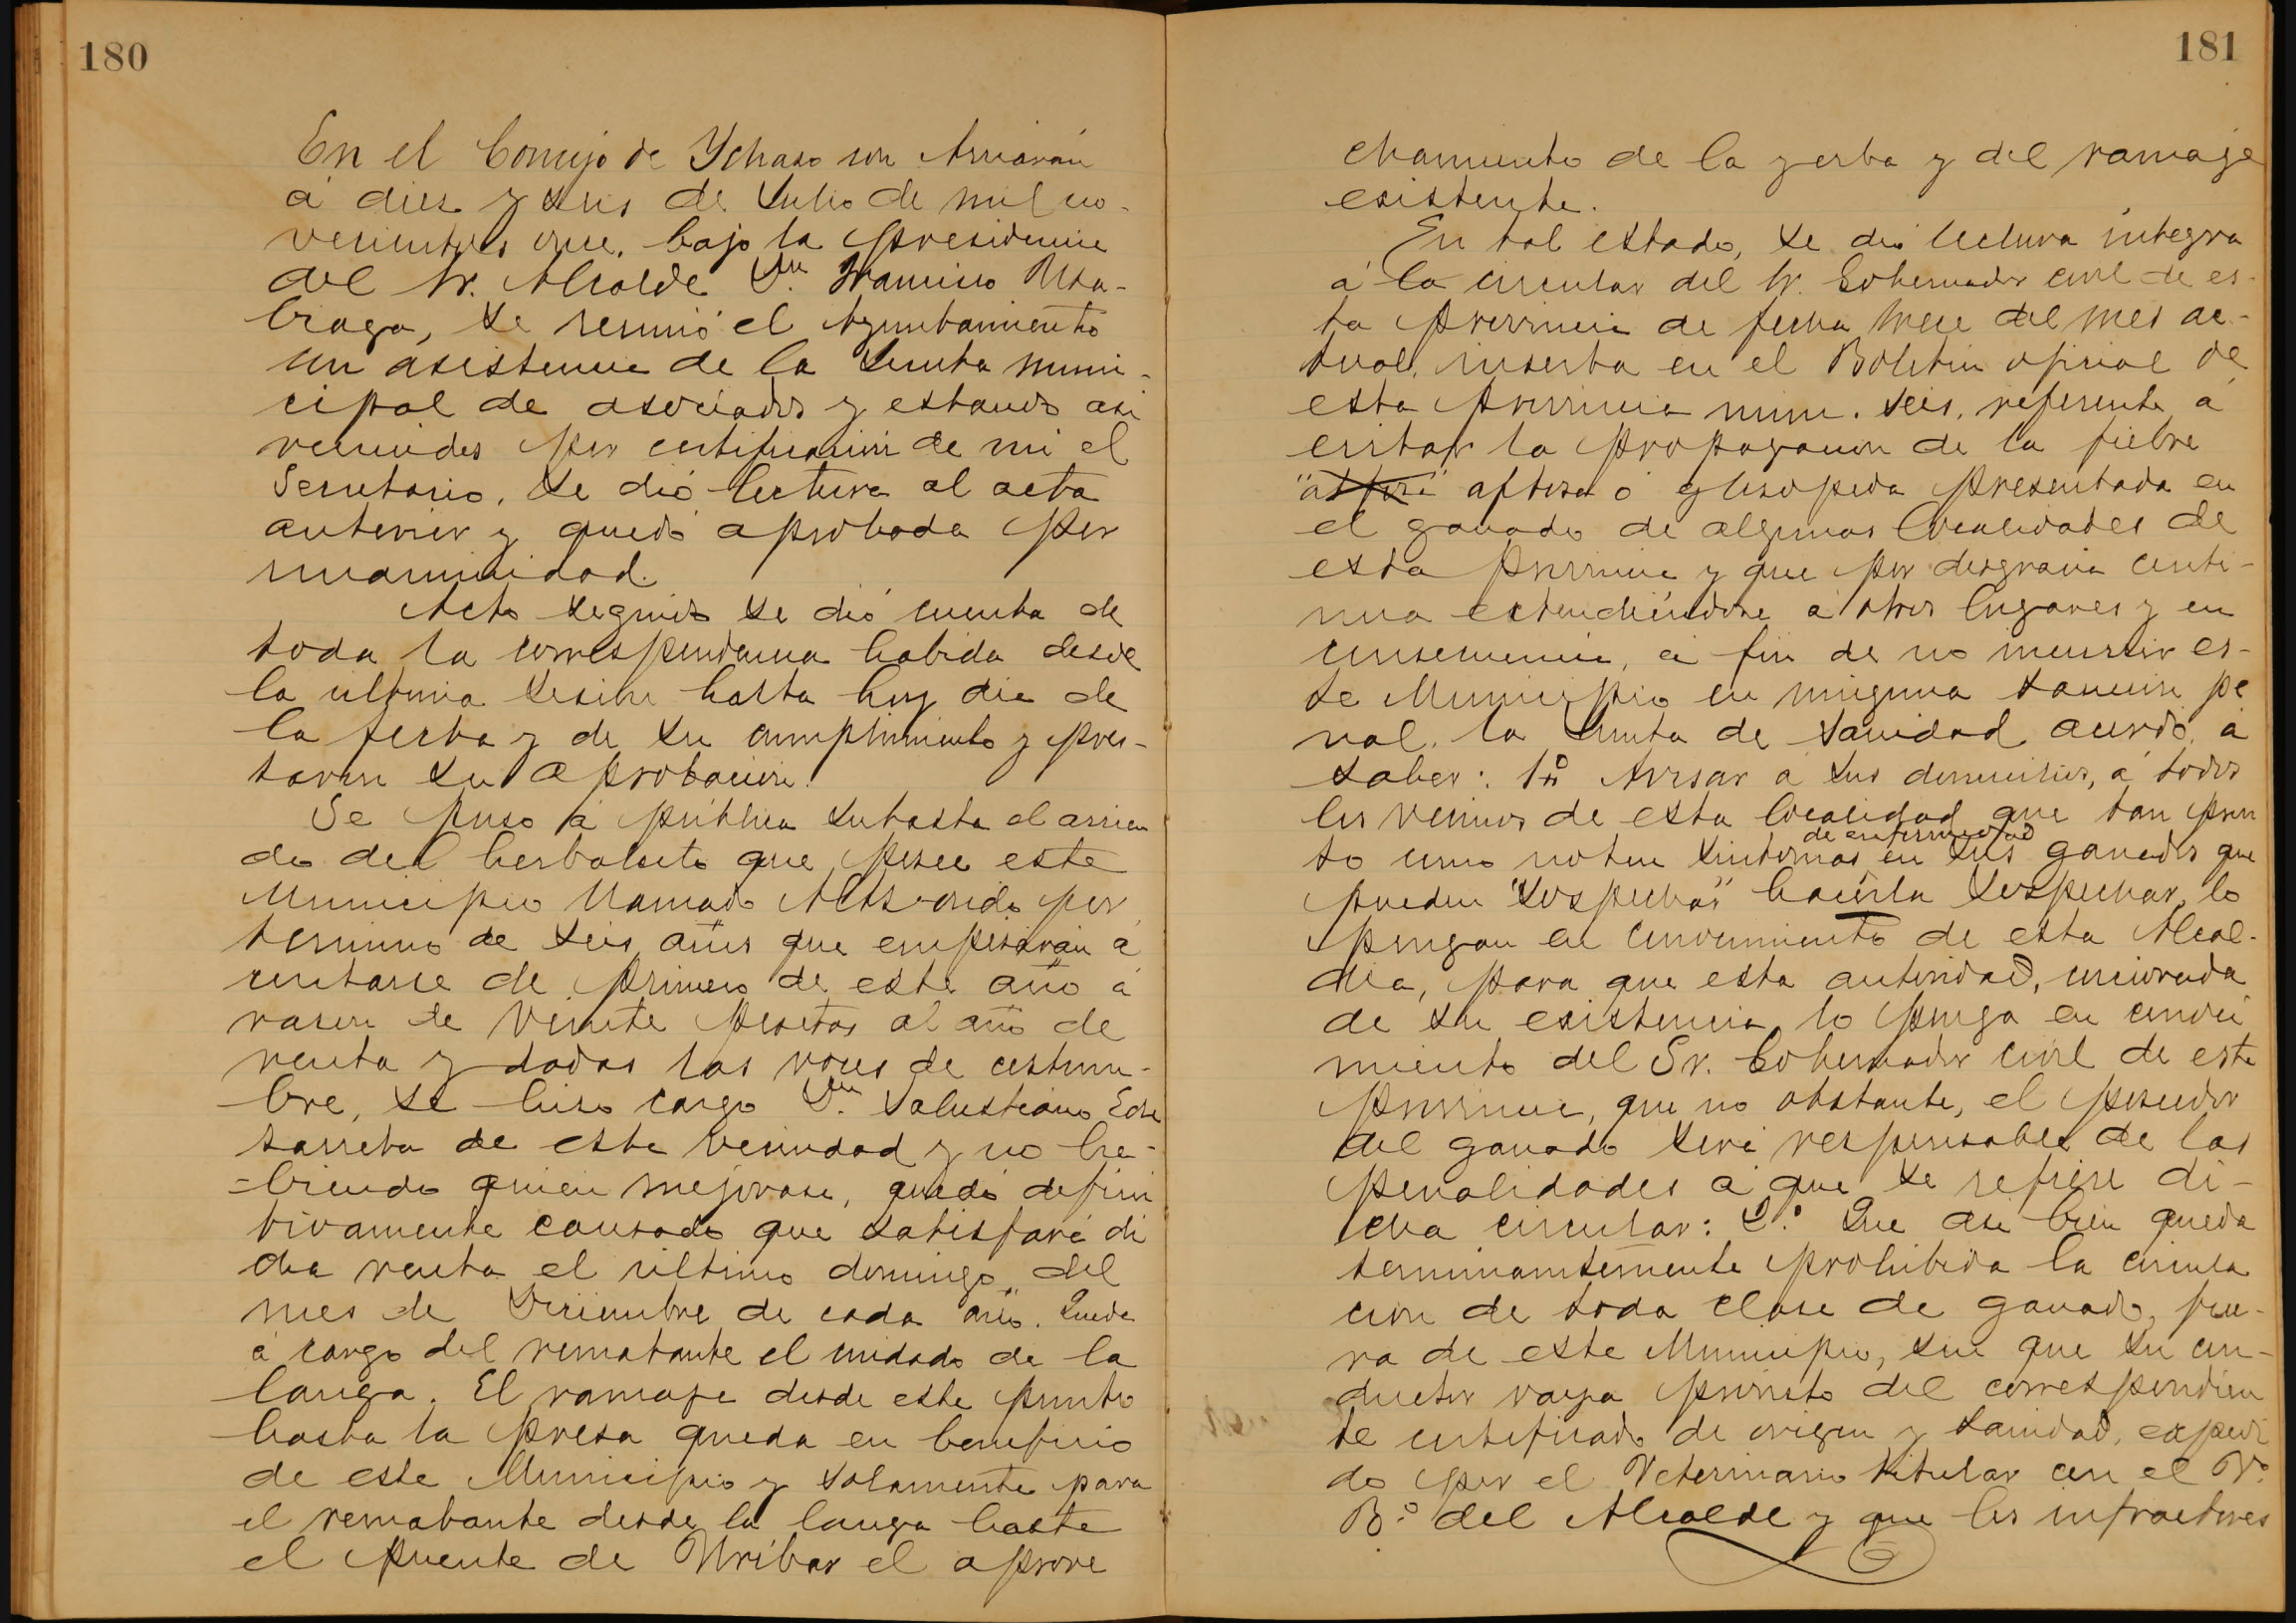 180
En el Concejo de Ychaso con Arriarán
á diez y seis de Julio de mil no-
vecientos once, bajo la presidencia
del Sr. Alcalde Dn. Francisco Usa-
biaga, se reunió el Ayuntamiento
con asistencia de la Junta muni-
cipal de asociados y estando asi
reunidos por certificación de mi el
Secretario, se dió lectura al acta
anterior y quedó aprobada por
unanimidad.
Acto seguido se dió cuenta de
toda la correspondencia habida desde
la última sesión hasta hoy dia de
la fecha y de su cumplimiento y pres-
taron su aprobación.
Se puso á pública subasta el arrien
do del herbalcito que posee este
Municipio llamado por
termino de seis años que empezarán á
contarse de primero de este año á
razon de veinte pesetas al año de
renta y dadas las voces de costum-
bre, se hizo cargo Dn. Salustiano Eche
zarreta de esta vecindad y no ha-
=biendo quien mejorase, quedó defini
tivamente causado que satisfará di
cha renta el último domingo del
mes de Diciembre de cada año. Queda
á cargo del rematante el cuidado de la
langa. El ramaje desde este punto
hasta la presa queda en beneficio
de este Municipio y solamente para
el rematante desde la langa hasta
el puente de Uribar el aprove
181
chamiento de la yerba y del ramaje
existente.
En tal estado, se dió lectura integra
á la circular del Sr. Gobernador civil de es-
ta provincia de fecha trece del mes ac-
tual, inserta en el Boletin oficial de
esta provincia num. seis, referente á
evitar la propagacion de la fiebre
aftosa ó glosopeda presentada en
el ganado de algunas localidades de
esta provincia y que por desgracia conti-
nua extendiéndose á otros lugares y en
consecuencia, á fin de no incurrir es-
te Municipio en ninguna sancion pe
nal, la Junta de Sanidad acordó, á
saber: 1º Avisar á sus domicilios, á todos
los vecinos de esta localidad que tan pron
to como noten sintomas de enfermedad en sus ganados que
pueden "sospechar" hacerla sospechar, lo
pongan en conocimiento de esta Alcal-
dia, para que esta autoridad, cerciorada
de su existencia, lo ponga en conoci
miento del Sr. Gobernador civil de esta
provincia, que no obstante, el poseedor
del ganado será responsable de las
penalidades á que se refiere di-
cha circular: 2.º Que asi bien queda
terminantemente prohibida la circula
cion de toda clase de ganado, fue-
ra de este Municipio, sin que su con-
ductor vaya provisto del correspondien
te certificado de origen y sanidad, expedi
do por el Veterinario titular con el Vº
Bº del Alcalde y que los infractores